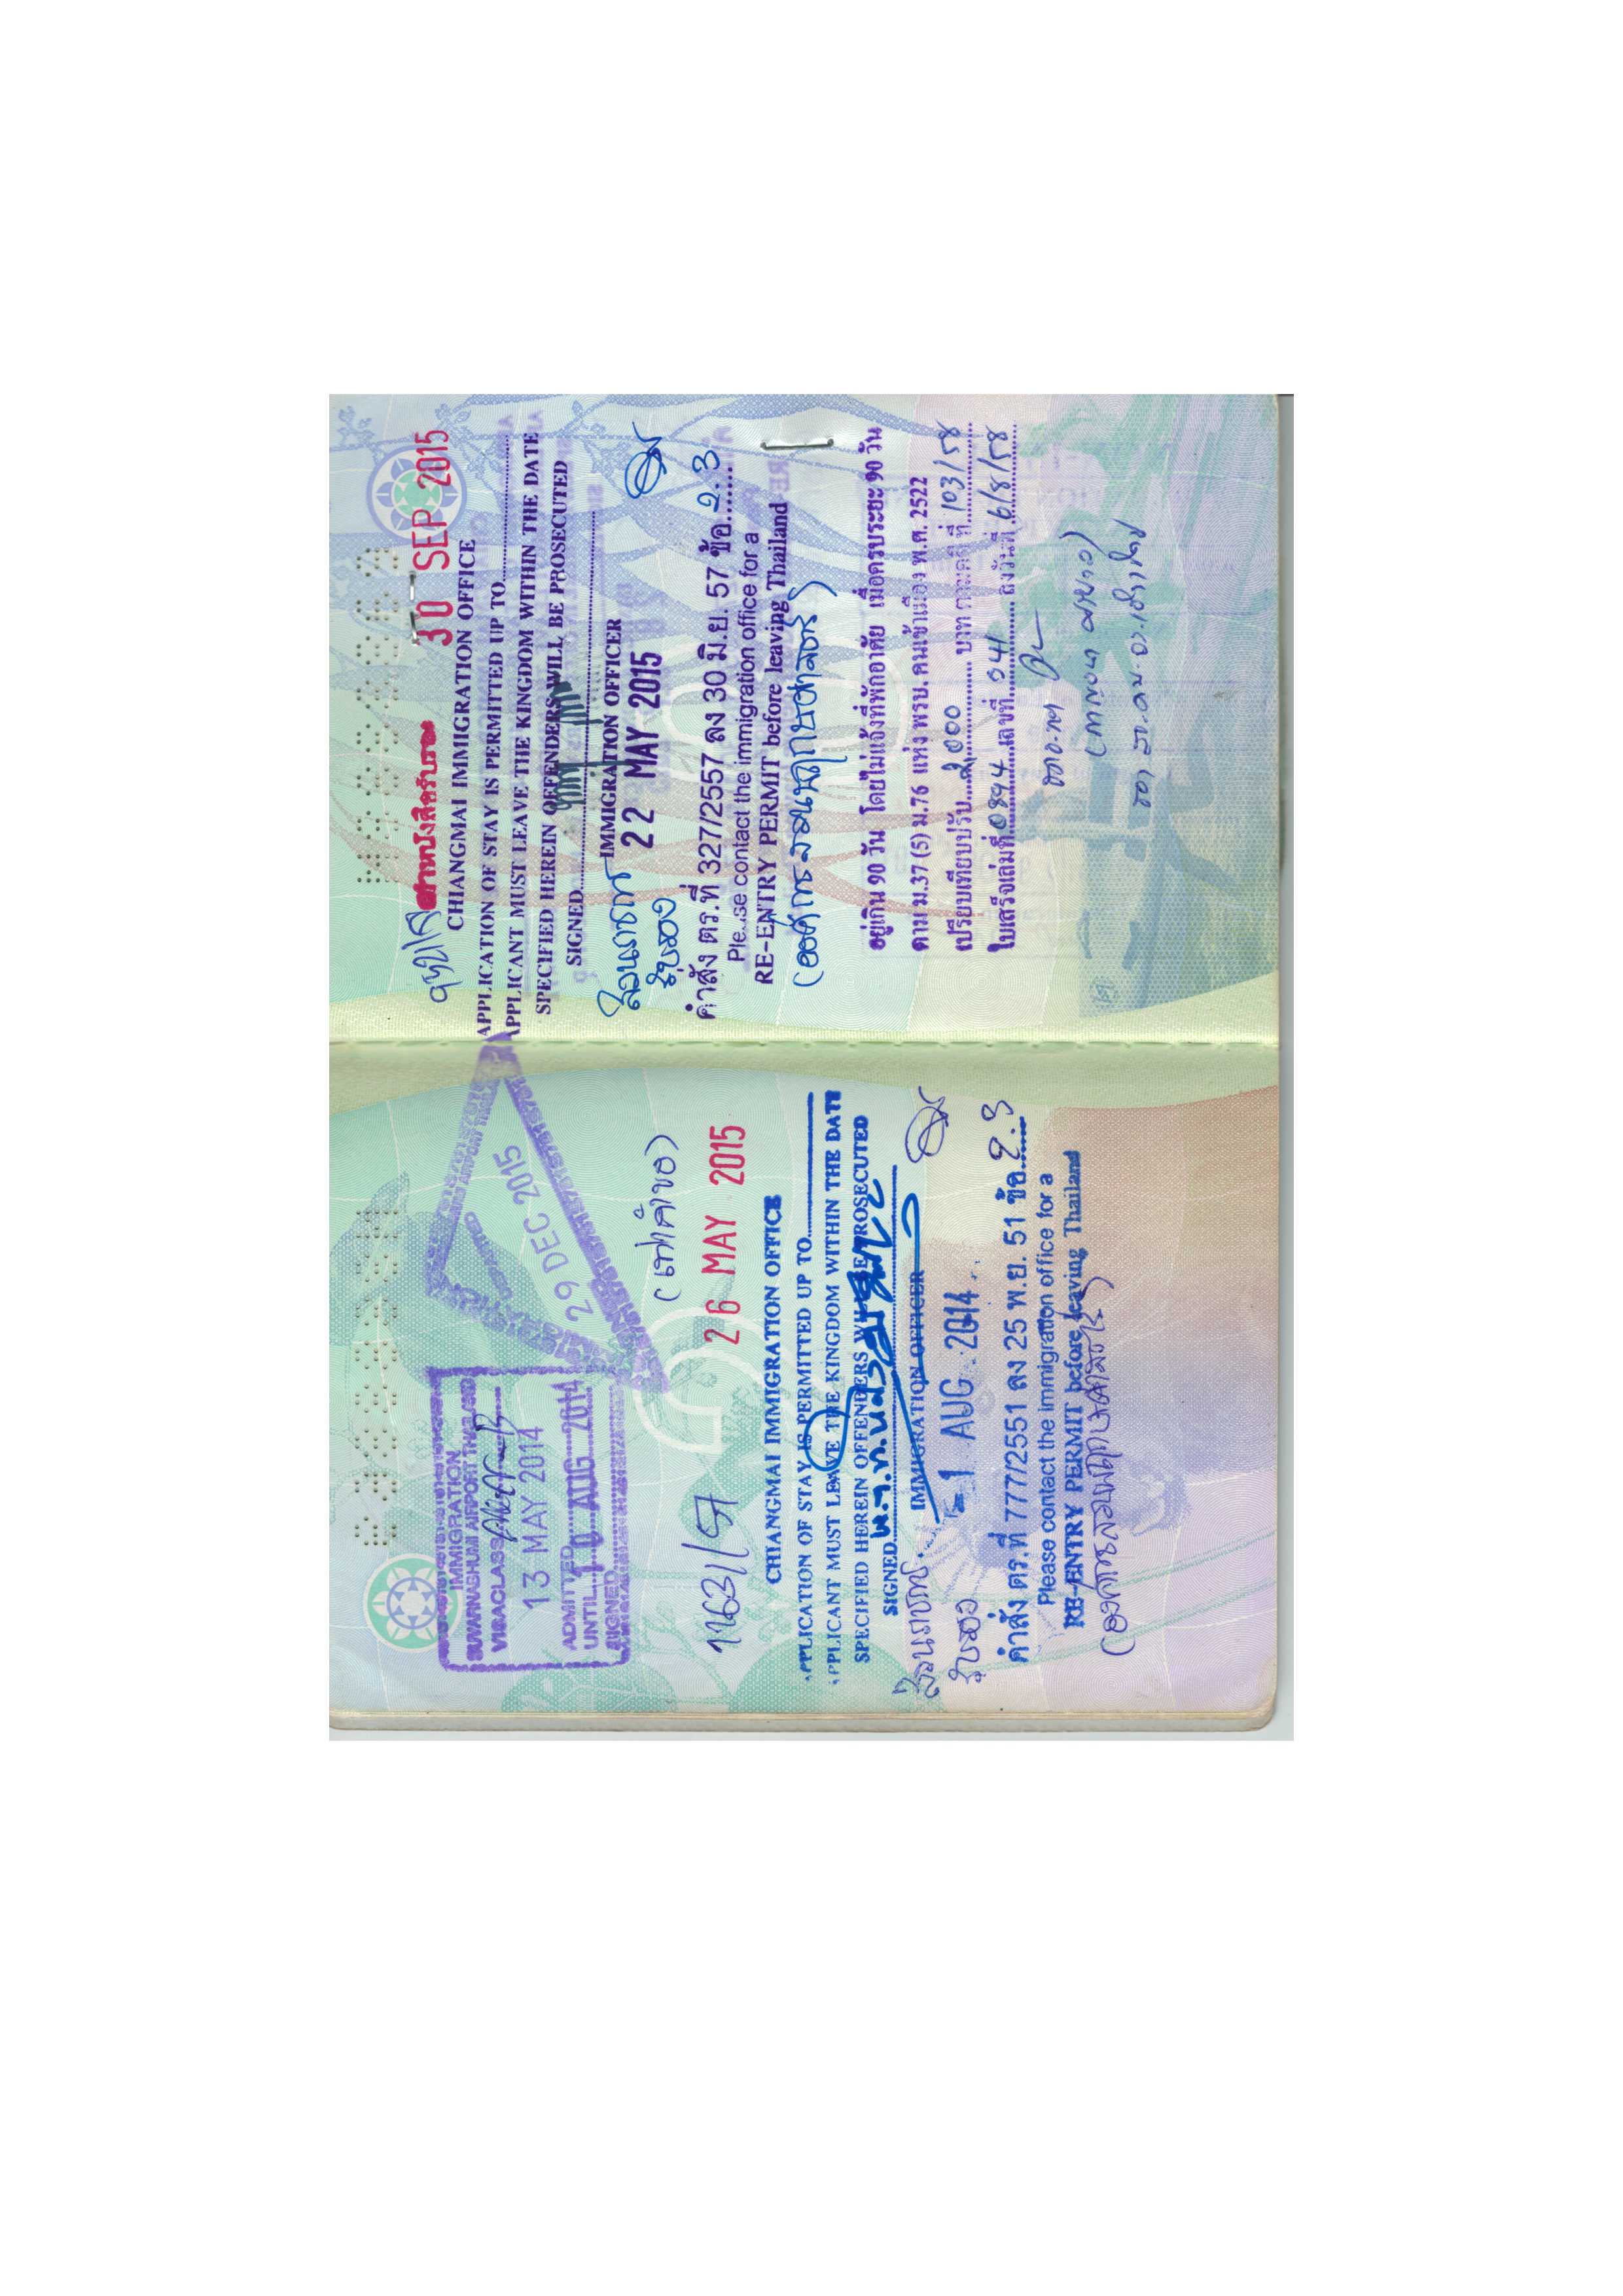 IMMIGRATION
SUVARNABHUMI AIRPORT THAILAND
VISACLASS
13 MAY 2014
ADMITTED
UNTIL 10 AUG 2014
SIGNED
DEPARTED
29 DEC 2015
1163/57
26 MAY 2015
CHIANGMAI IMMIGRATION OFFICE
APPLICATION OF STAY IS PERMITTED UP TO
APPLICANT MUST LEAVE THE KINGDOM WITHIN THE DATE
SPECIFIED HEREIN OFFENDERS WILL BE PROSECUTED
SIGNED
IMMIGRATION OFFICER
-1 AUG 2014
คำสั่ง ตร.ที่ 777/2551 ลง 25 พ.ย. 51 ข้อ 2.3
Please contact the immigration office for a
RE-ENTRY PERMIT before leaving Thailand
30 SEP 2015
CHIANGMAI IMMIGRATION OFFICE
APPLICATION OF STAY IS PERMITTED UP TO
APPLICANT MUST LEAVE THE KINGDOM WITHIN THE DATE
SPECIFIED HEREIN OFFENDERS WILL BE PROSECUTED
SIGNED
IMMIGRATION OFFICER
22 MAY 2015
คำสั่ง ตร.ที่ 327/2557 ลง 30 มิ.ย. 57 ข้อ 2.3
Please contact the immigration office for a
RE-ENTRY PERMIT before leaving Thailand
อยู่เกิน 90 วัน โดยไม่แจ้งที่พักอาศัย เมื่อครบระยะ 90 วัน
ตาม ม.37 (5) ม.76 แห่ง พรบ.คนเข้าเมือง พ.ศ. 2522
เปรียบเทียบปรับ 2,000 บาท ตามคดีที่ 103/58
ใบเสร็จเล่มที่ 0894 เลขที่ 041 ลงวันที่ 6/8/58